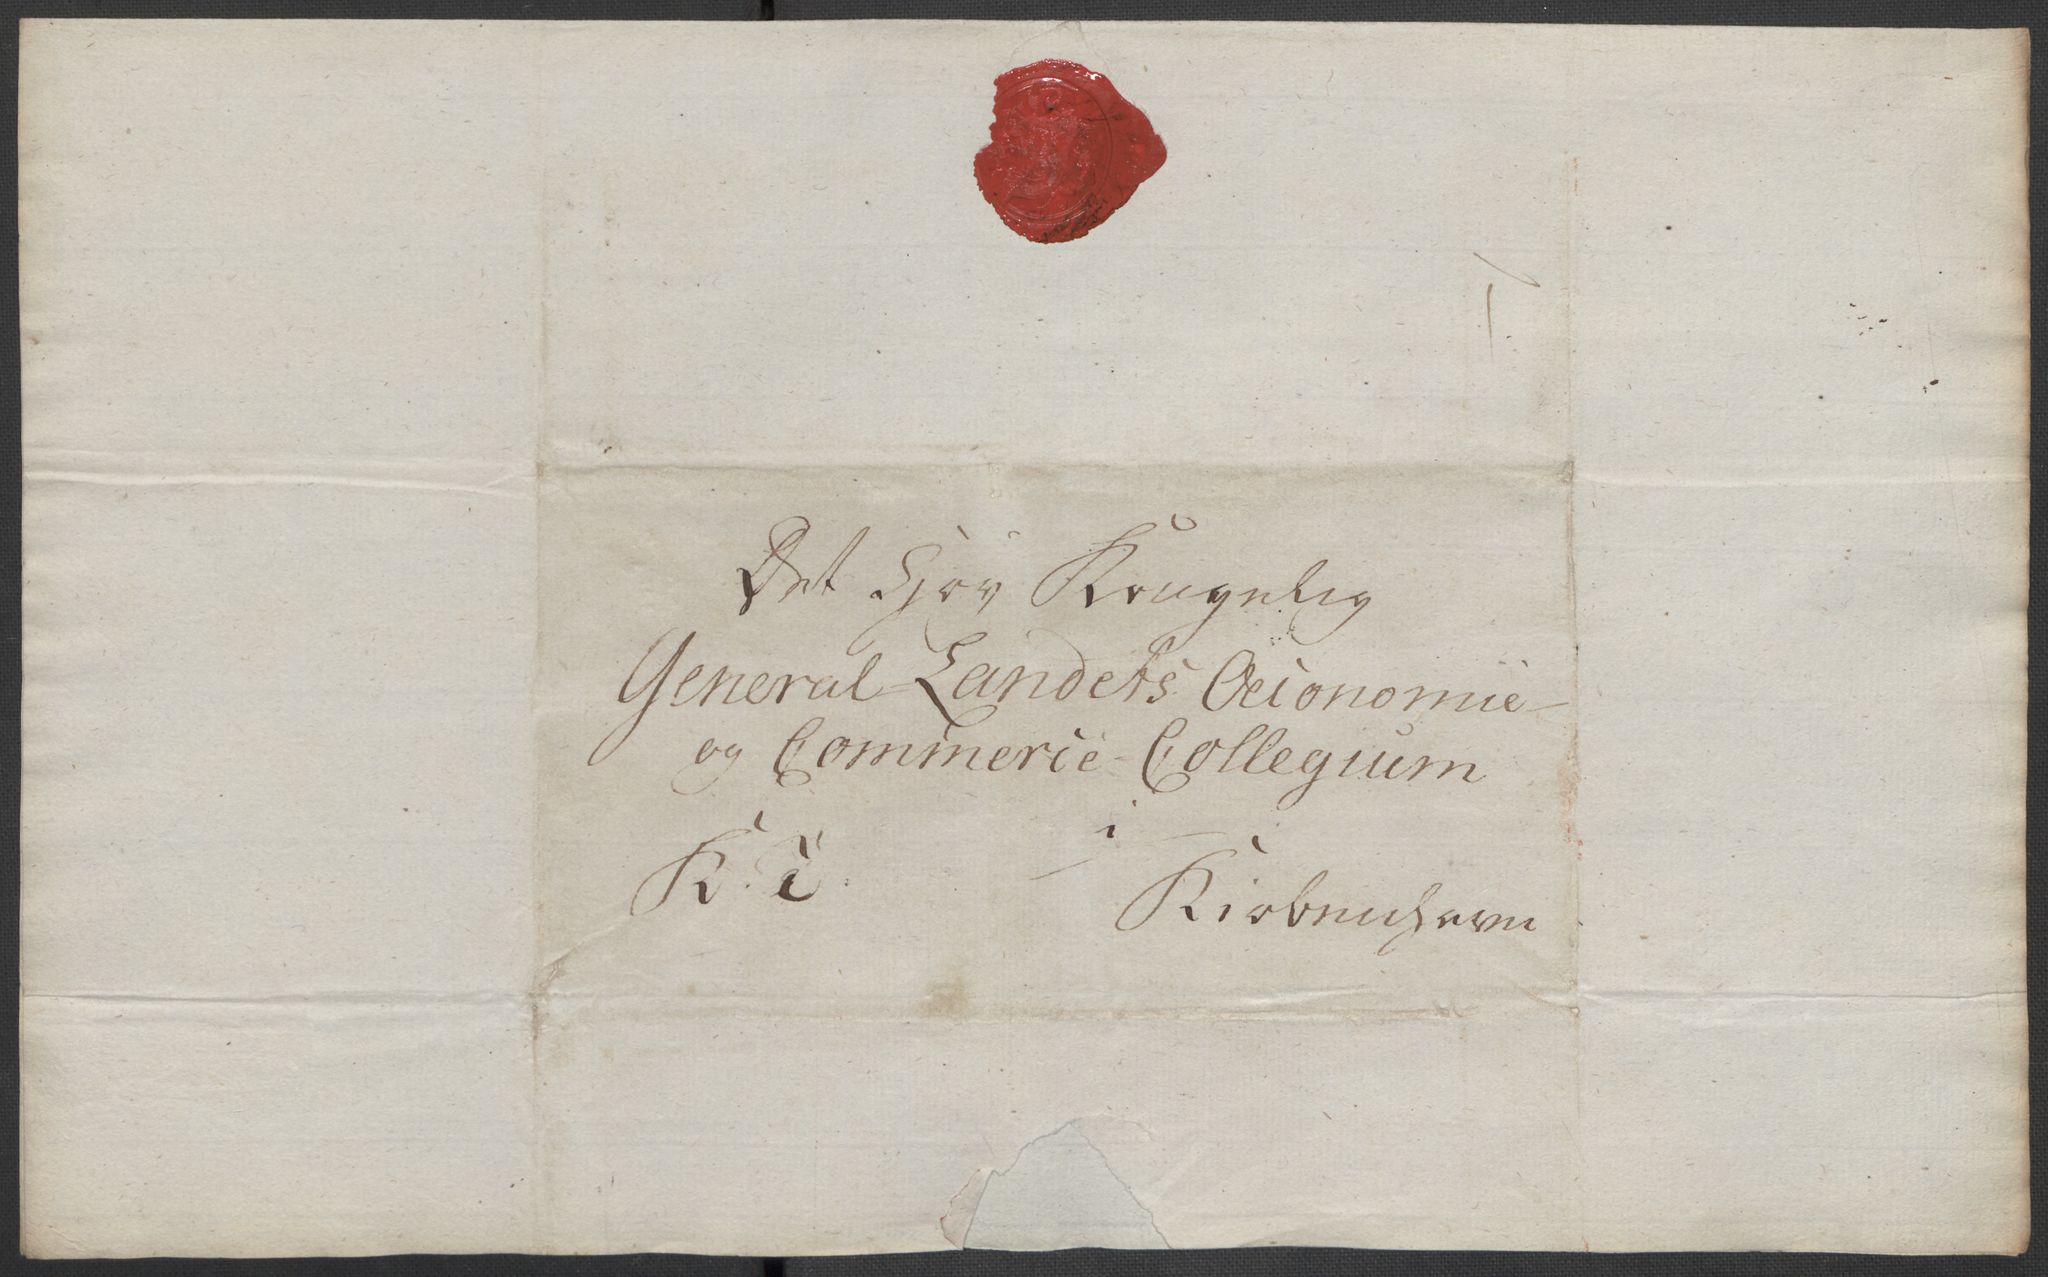 Det Høy Kongelig
General-Landets Oeconomie-
og Commercie-Collegium
i
K. T. Kiøbenhavn